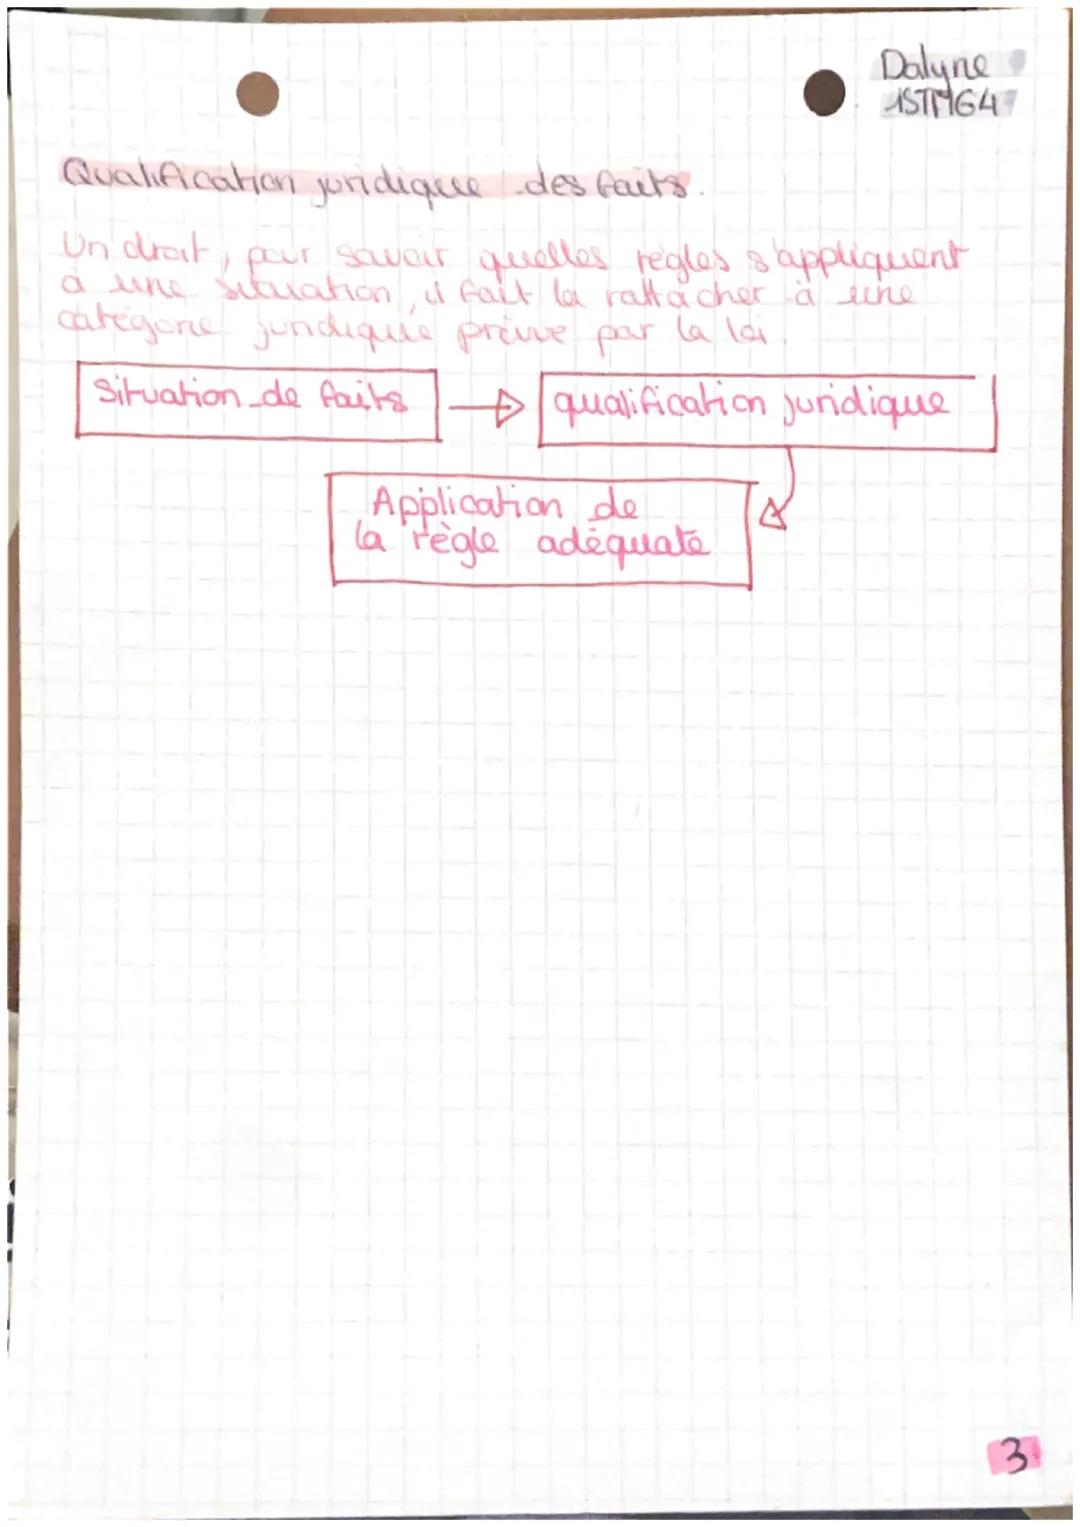 Dalyne
1STMG4
Qualification juridique des faits.
Un droit, pour savoir quelles règles s'appliquent
à une situation, il fait la rattacher à une
catégorie juridique prévue par la loi.
Situation de faits
qualification juridique
Application de
la règle adéquate
3